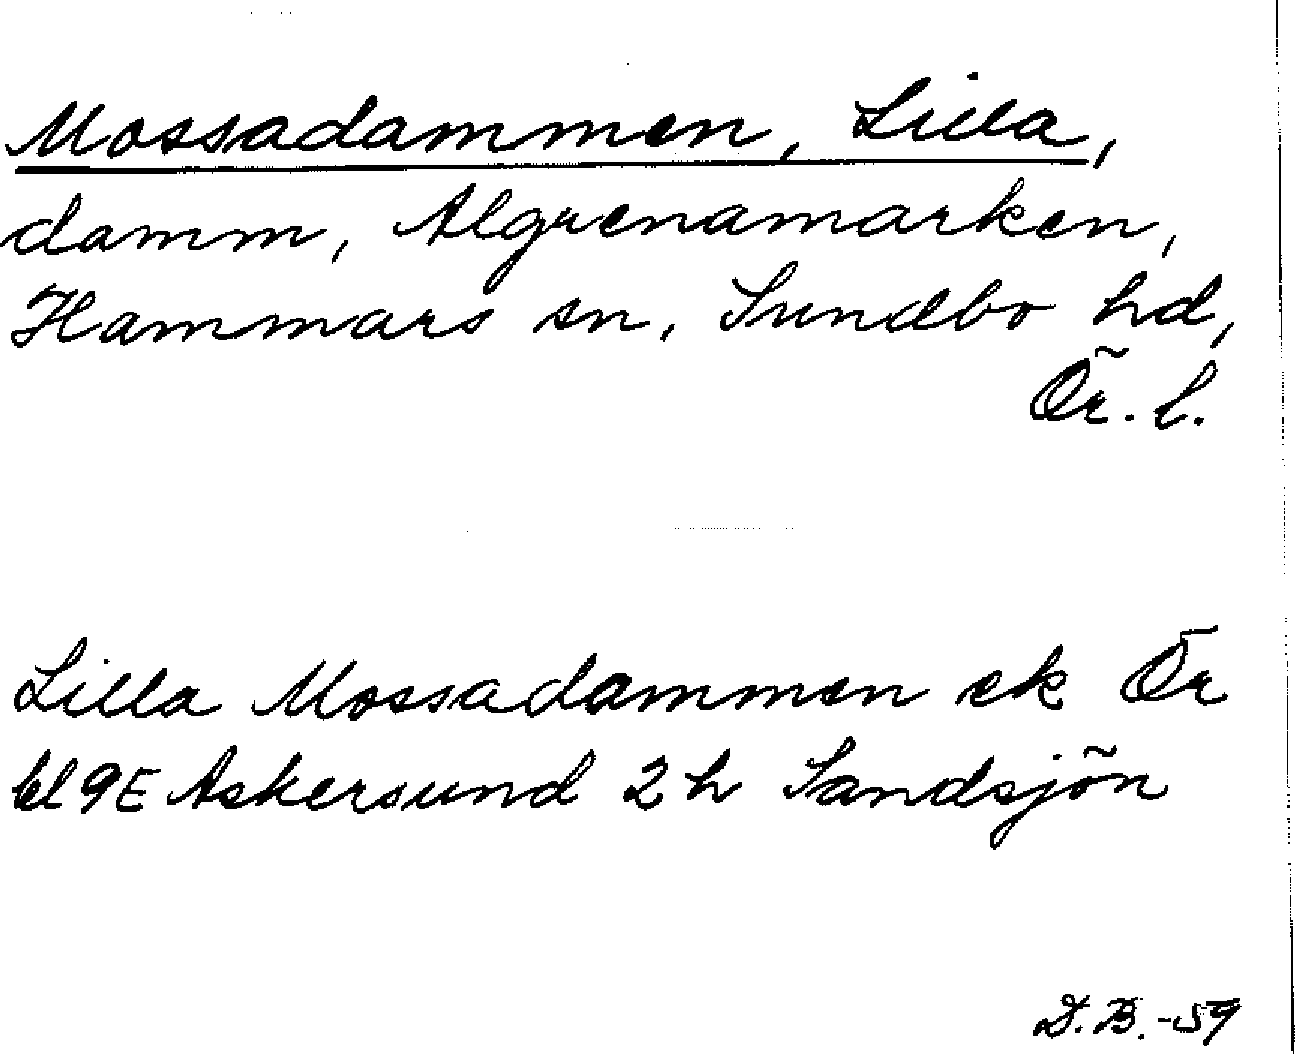 Mossadammen, Lilla,
damm, Algrenamarken,
Hammars sn, Sundbo hd,
Ör. l.
Lilla Mossadammen ek Ör
bl 9E Askersund 2h Sandsjön
D.B.-59